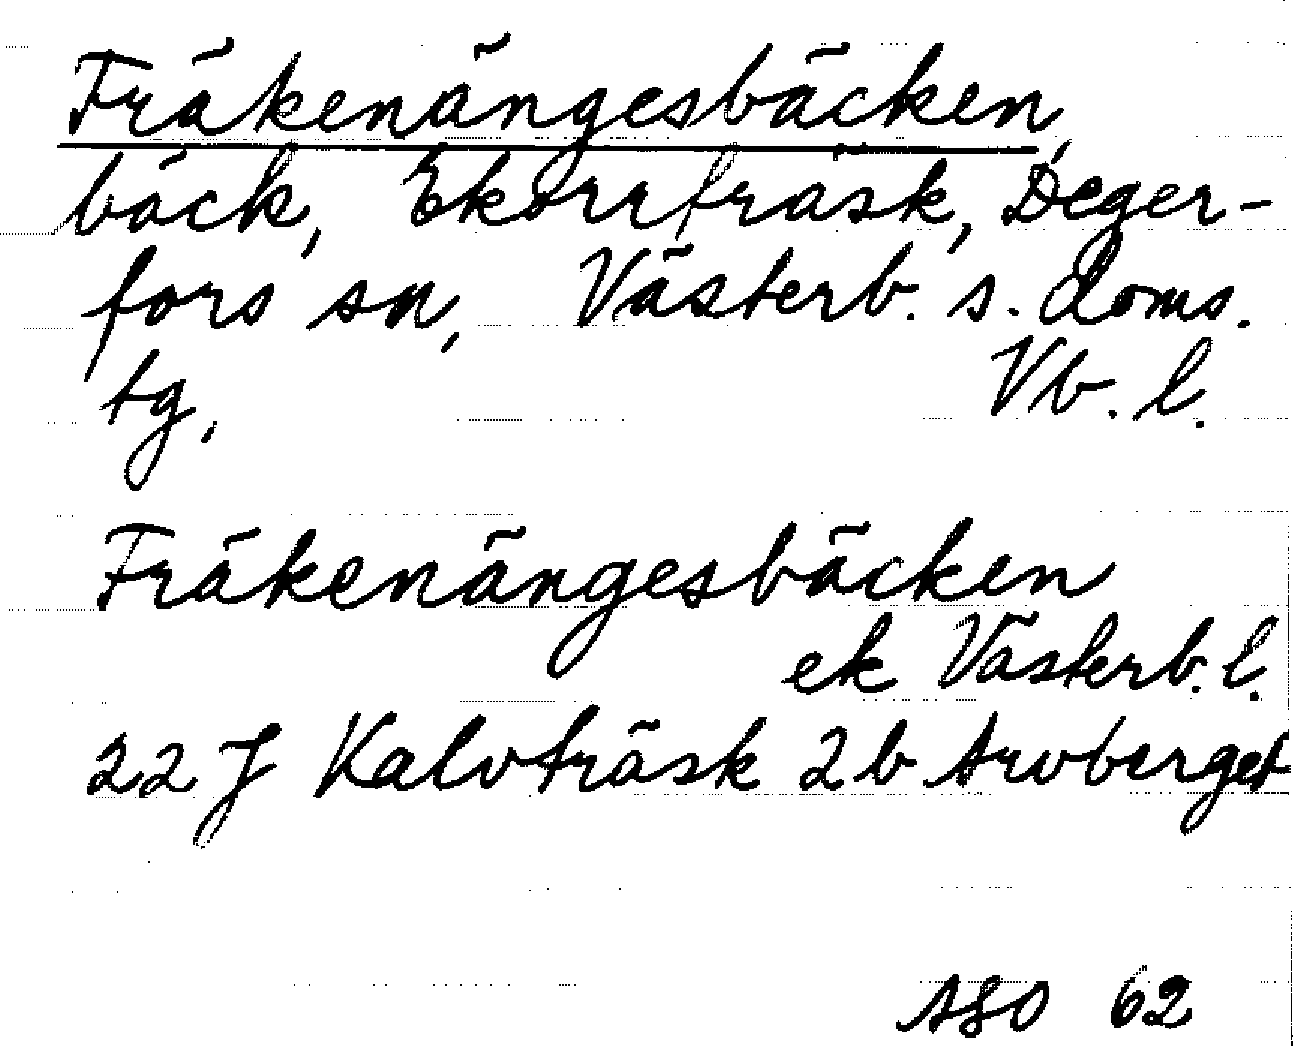 Fräkenängesbäcken,
bäck, Ekorrträsk, Deger-
fors sn, Västerb. s. doms.
tg, Vb. l.
Fräkenängesbäcken
ek Västerb. l.
22 J Kalvträsk 2b Arvberget
ASO 62